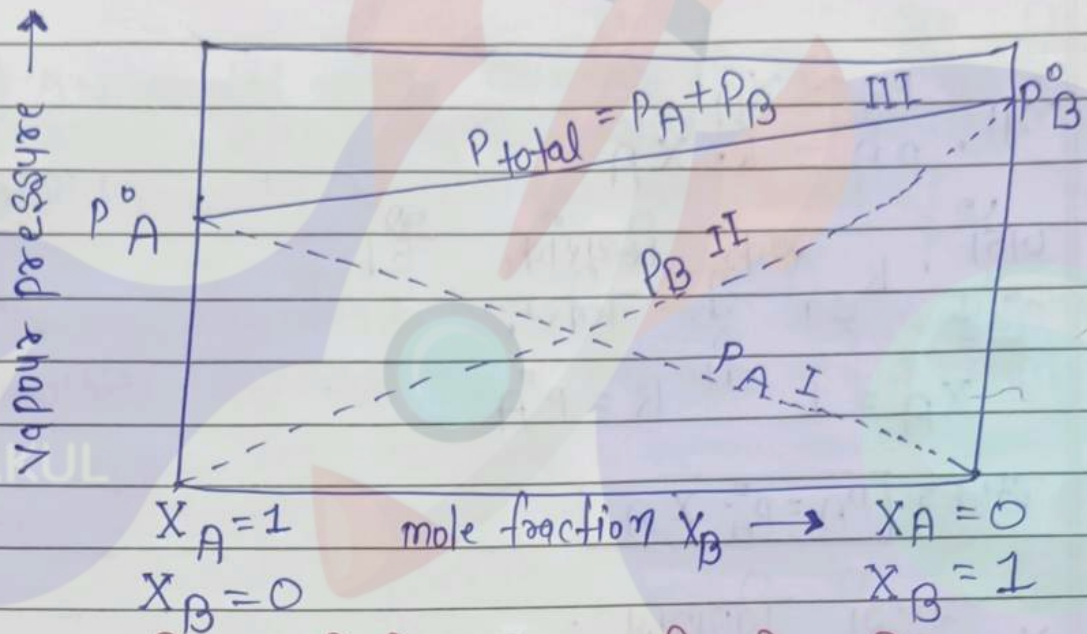 Vapour pressure →
P°A
P total = PA + PB III
P°B
PB II
PA I
XA = 1 mole fraction XB → XA = 0
XB = 0 XB = 1